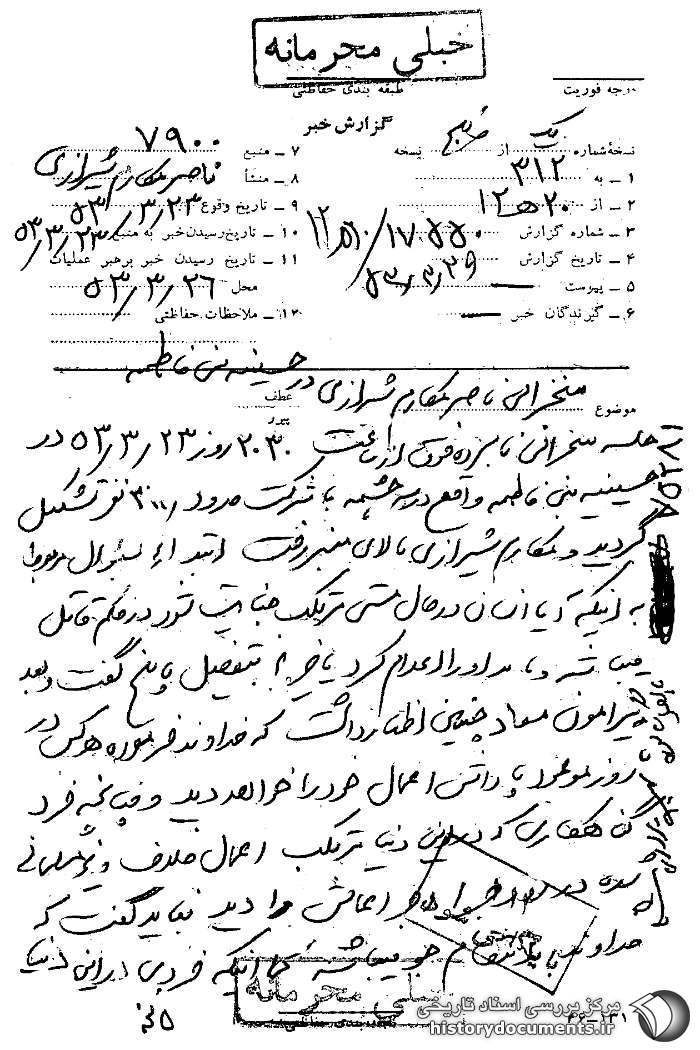 خیلی محرمانه
درجه فوریت
طبقه بندی حفاظتی
گزارش خبر
نسخهٔ شماره یک از پنج نسخه
۱ – به ۳۱۲
۲ – از ۲۰ ه ۱۲
۳ – شماره گزارش
۴ – تاریخ گزارش ۵۳/۳/۲۹
۵ – پیوست —
۶ – گیرندگان خبر —
۷ – منبع ۷۹۰۰
۸ – منشأ ناصر مکارم شیرازی
۹ – تاریخ وقوع ۵۳/۳/۲۳
۱۰ – تاریخ رسیدن خبر به منبع ۵۳/۳/۲۳
۱۱ – تاریخ رسیدن خبر برهبر عملیات
محل ۵۳/۳/۲۶
۱۲ – ملاحظات حفاظتی
موضوع سخنرانی ناصر مکارم شیرازی در حسینیه بنی فاطمه
عطف
پیرو
جلسه سخنرانی نامبرده فوق از ساعت ۲۰۳۰ روز ۵۳/۳/۲۳ در
حسینیه بنی فاطمه واقع در سرچشمه با شرکت حدود ۳۰۰۰ نفر تشکیل
گردید و مکارم شیرازی بالای منبر رفت ابتدا به سئوال مربوط
به اینکه آیا انسان در حال مستی مرتکب جنایت شود در حکم قاتل
میباشد و باید او را اعدام کرد یا خیر؟ بتفصیل پاسخ گفت و بعد
پیرامون معاد چنین اظهار داشت که خداوند فرموده هرکس در
روز موعود پاداش اعمال خود را خواهد دید و چنانچه فرد
گناهکاری که در این دنیا مرتکب اعمال خلاف و غیر انسانی
شده در اعمالش را دید نباید گفت که
خداوند انتقام جو میباشد کما اینکه فردی در این دنیا
خیلی محرمانه
طبقه بندی حفاظتی
۴۶–۱۳۱
مرکز بررسی اسناد تاریخی
historydocuments.ir